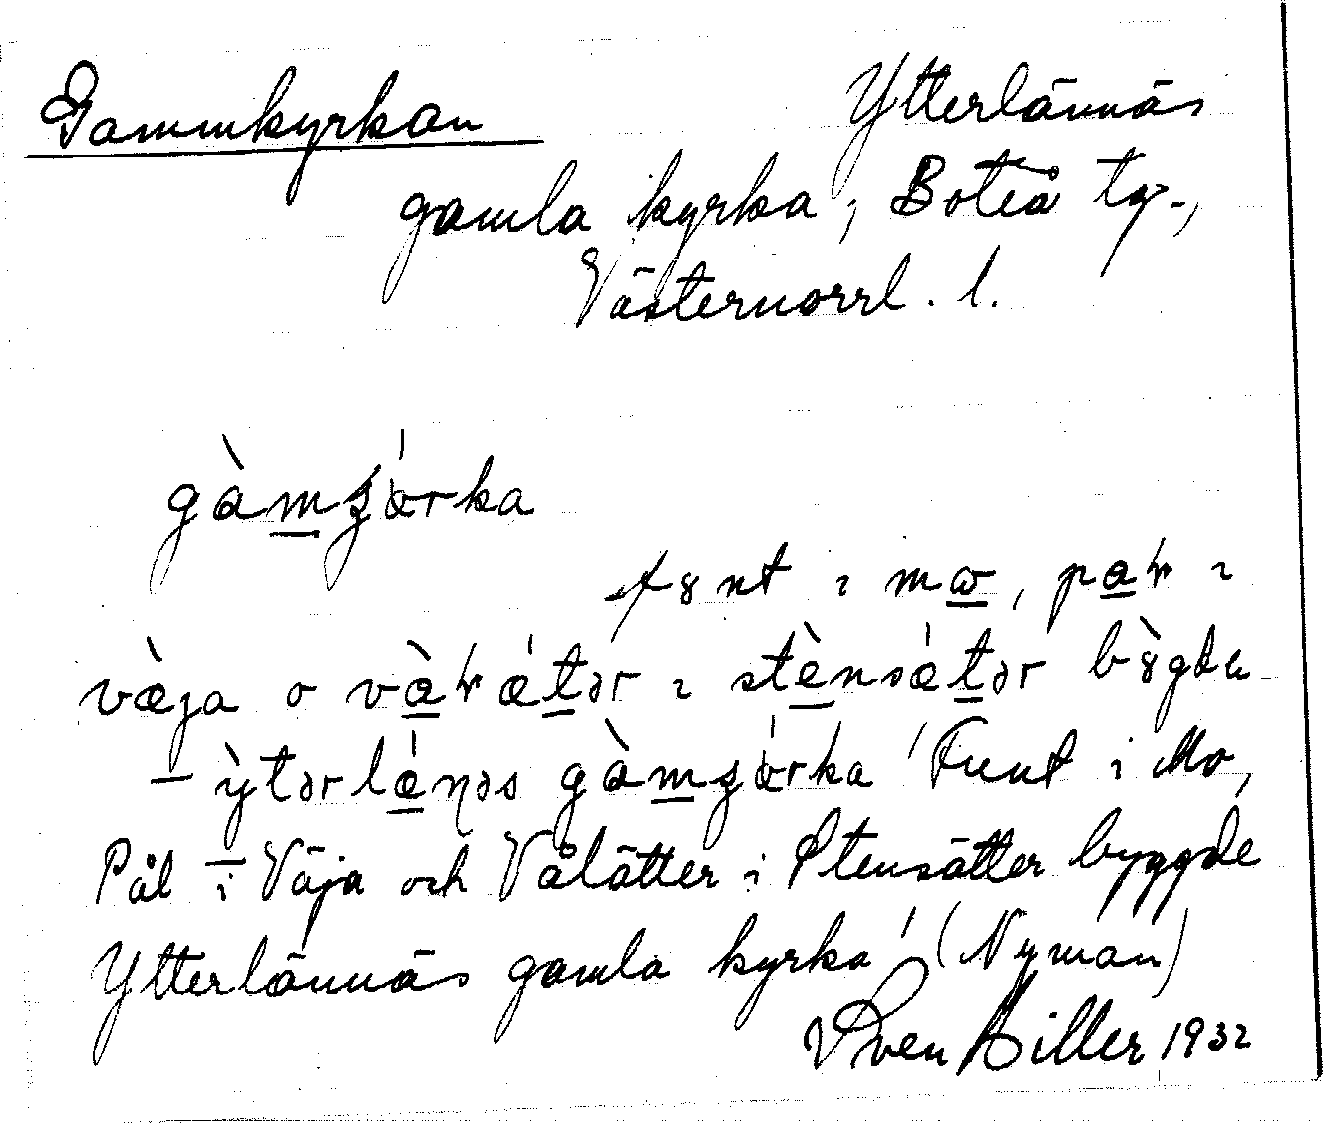 Gammkyrkan
Ytterlännäs
gamla kyrka, Boteå tg.,
Västernorrl. l.
gàmʒɵ́rka
fȣnt ɩ mɷ, paɫ ɩ
væ̀ja o vàɫǽtər ɩ stènsǽtər bȣ̀gda
– ỳtərlǽnəs gàmʒɵ́rka 'Funt i Mo,
Pål i Väja och Vålätter i Stensätter byggde
Ytterlännäs gamla kyrka' (Nyman)
Sven Hiller 1932